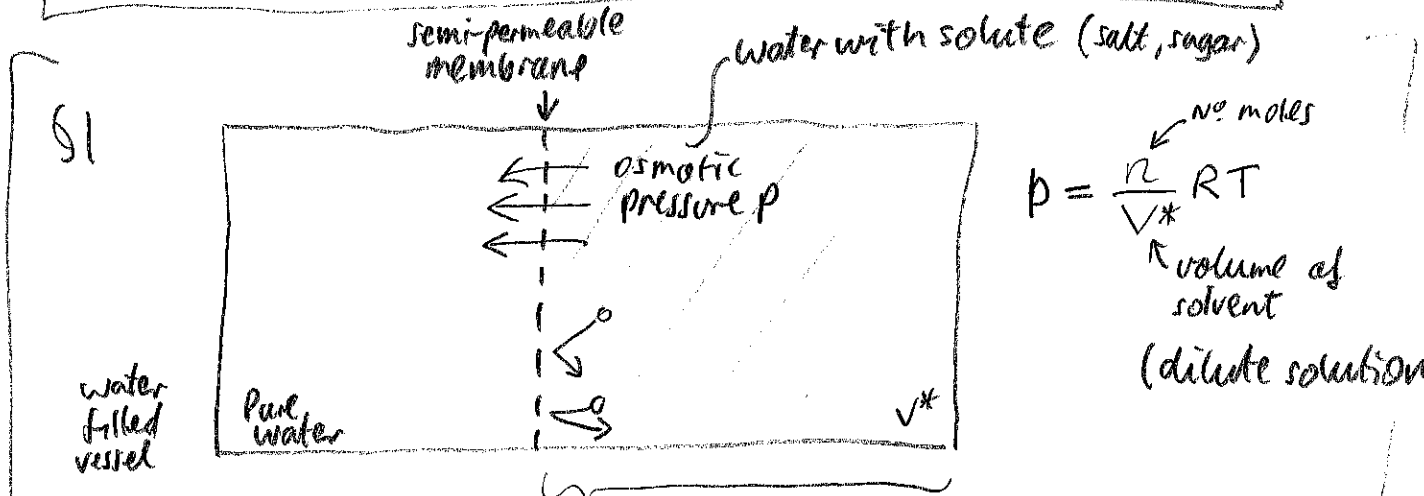 semi-permeable
membrane
water with solute (salt, sugar)
§1
Nº moles
osmotic
pressure p
p = n/V* RT
volume of
solvent
(dilute solution
water
filled
vessel
Pure
water
V*